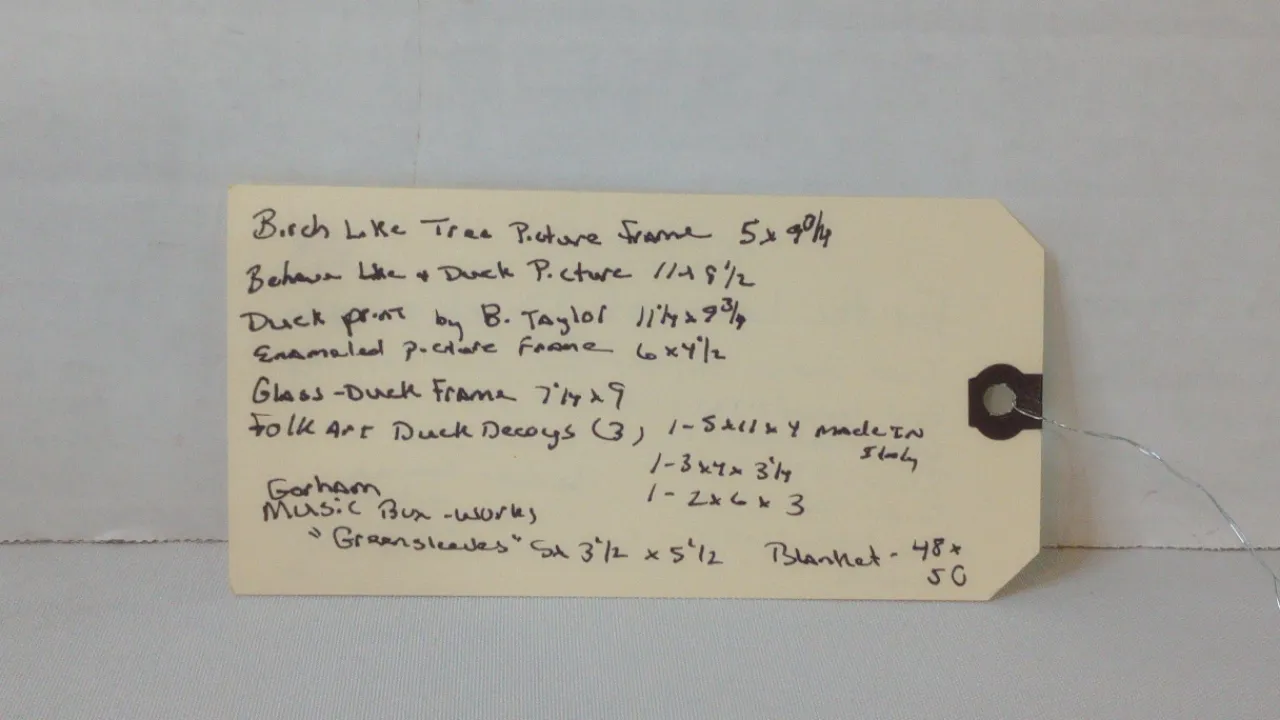 Birch Like Tree Picture Frame 5 x
Behave Like a Duck Picture 11 x 9 1/2
Duck print by B. Taylor 11 1/4 x 9 3/4
Enamaled picture Frame 6 x 4 1/2
Glass - Duck Frame 7 1/4 x 9
Folk Art Duck Decoys (3) 1 - 5 x 11 x 4 Made IN
Italy
1 - 3 x 4 x 3 1/4
1 - 2 x 6 x 3
Gorham
Music Box - works
"Greensleeves" 5 x 3 1/2 x 5 1/2
Blanket - 48 x
50